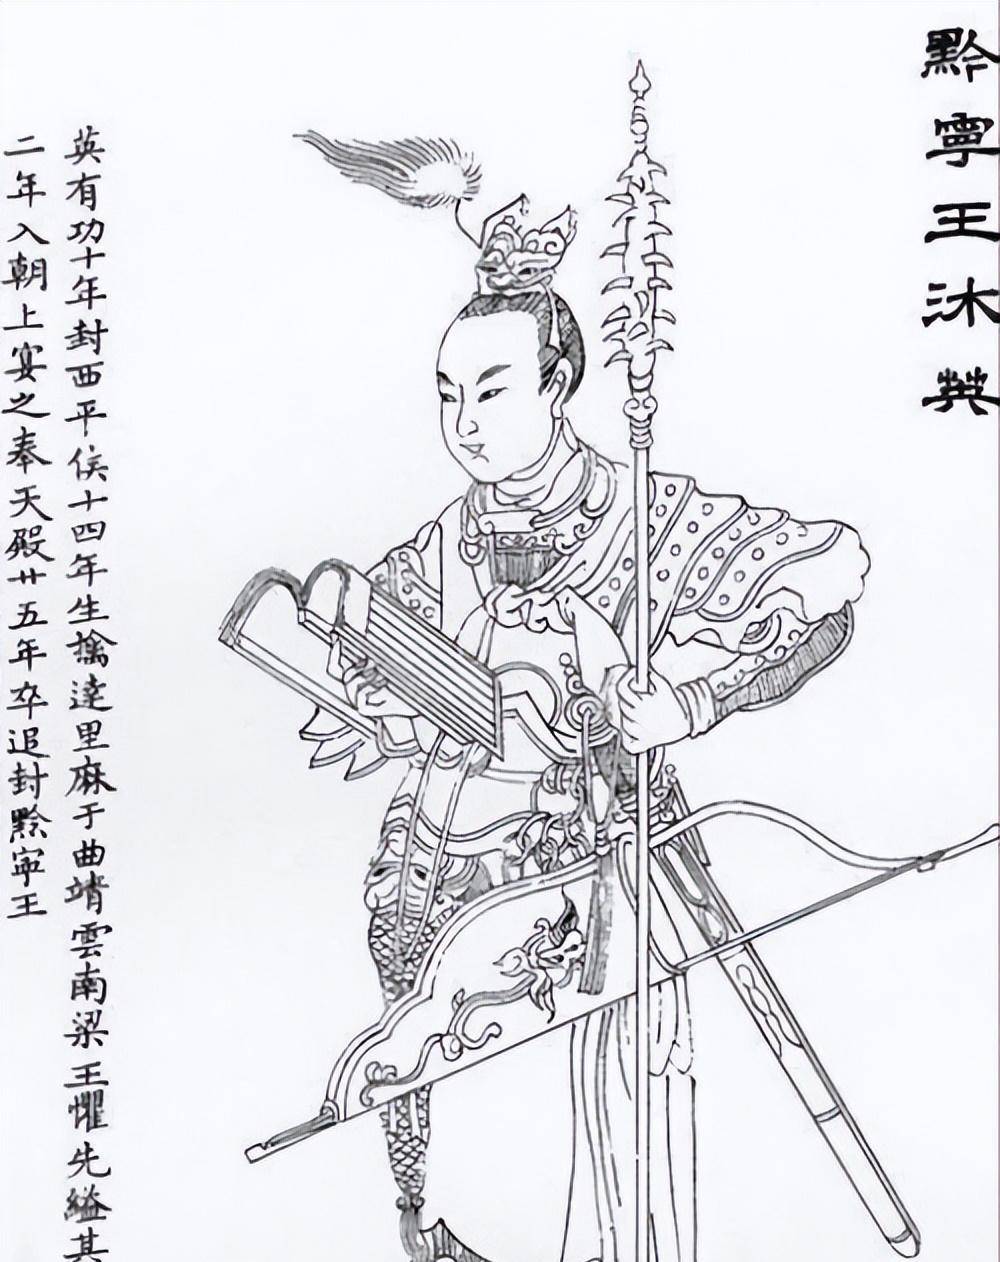 黔寧王沐英
英有功十年封西平侯十四年生擒達里麻于曲靖雲南梁王懼先縊其
二年入朝上宴之奉天殿廿五年卒追封黔寧王